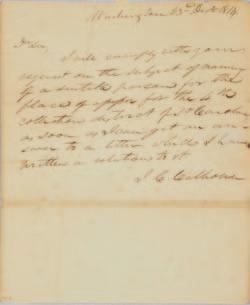 Washington 23rd Decr 1814
Dr Sir,
I will comply with your
request on the subject of naming
of a suitable person for the
place of for the 4th
collection district of So Carolina
as soon as I can get an an-
swer to a letter which I have
written in relation to it
J. C. Calhoun